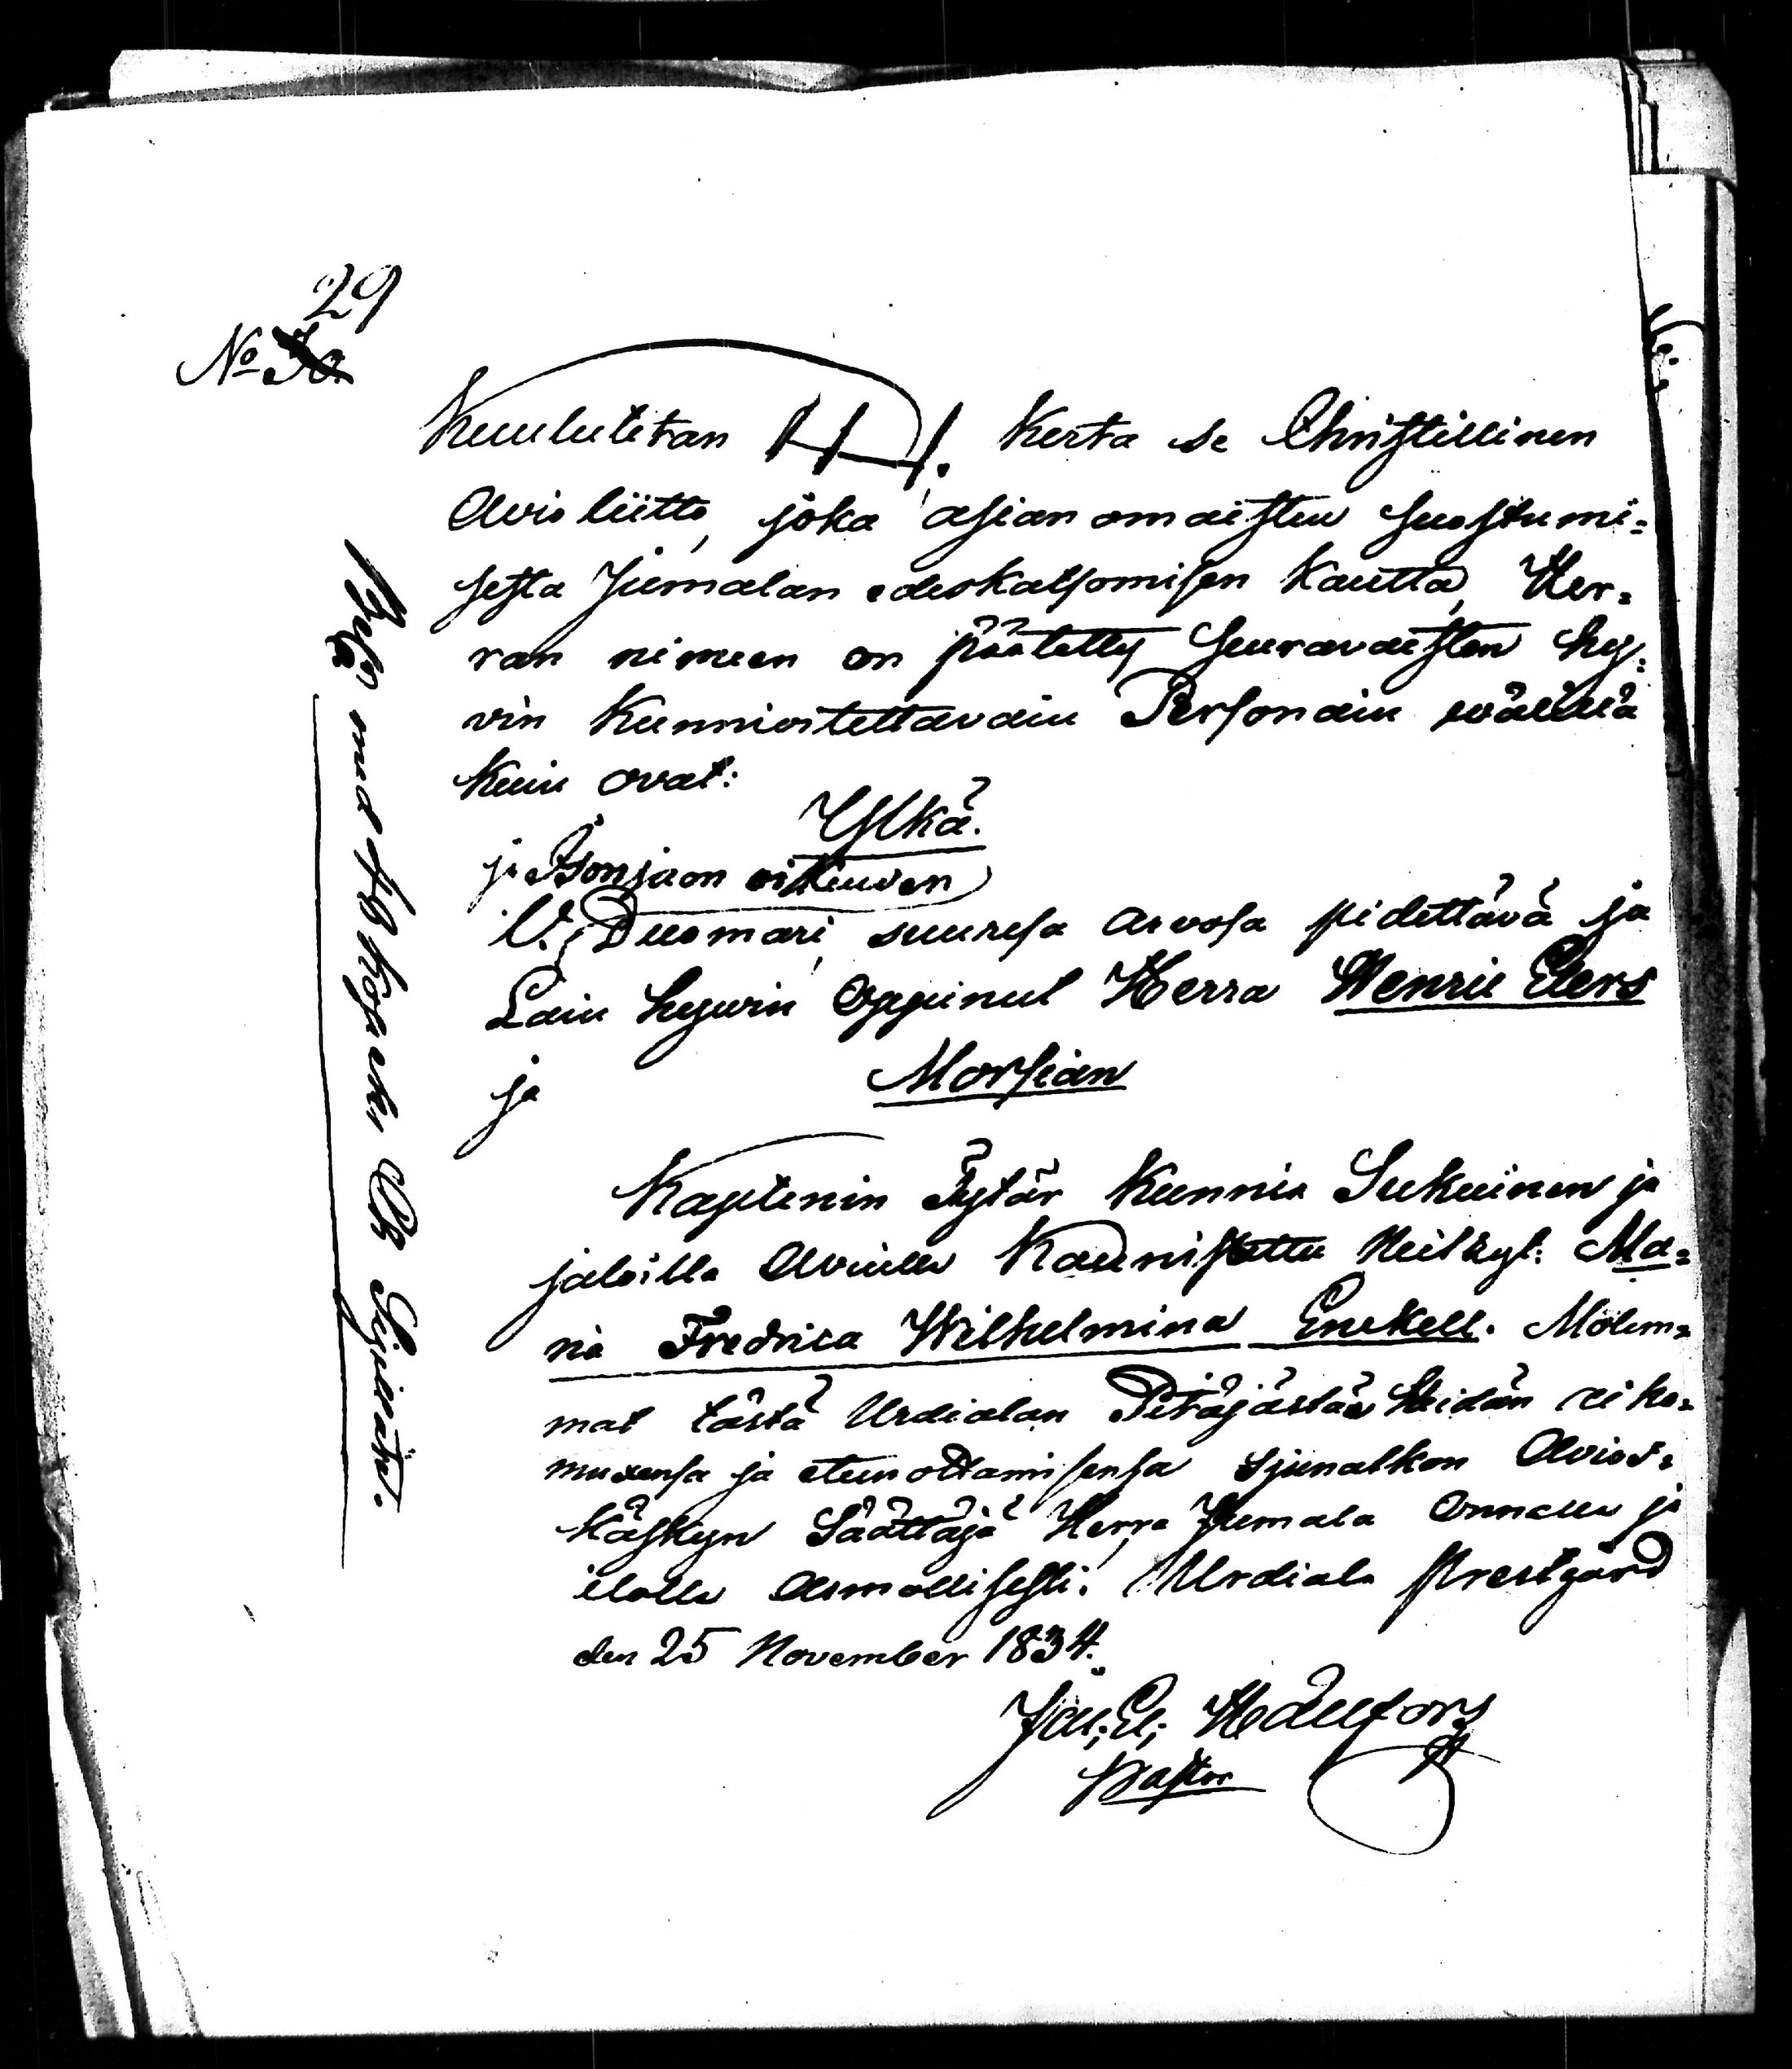 29
No 30.
Kuulutetan III. kerta se Christillinen
Avioliitto, joka asianomaisten suostumi=
sesta Jumalan edeskatsomisen kautta, Her=
ran nimeen on päätetty seuravaisten hy=
vin kunnioitettavain Personain wälillä
kuin ovat:
Ylkä.
ja Isonjaon oikeuden
V. Duomari, suuresa arvosa pidettävä ja
Lain hywin oppinut Herra Henric Elers
ja Morsian
Kaptenin Tytär kunnia Sukuinen ja
jaloilla Avuilla Kaunistettu Neitzyt. Ma=
ria Fredrica Wilhelmina Enckell. Molem=
mat tästä Urdialan Pitäjästä. Heidän aiko=
muxensa ja eteenottamisensa siunatkon Avios=
käskyn Säättäjä Herra Jumala onnella ja
ilolla Armollisesti. Urdiala Prestgård
den 25 November 1834.
Joh: El: Hällfors
Pastor